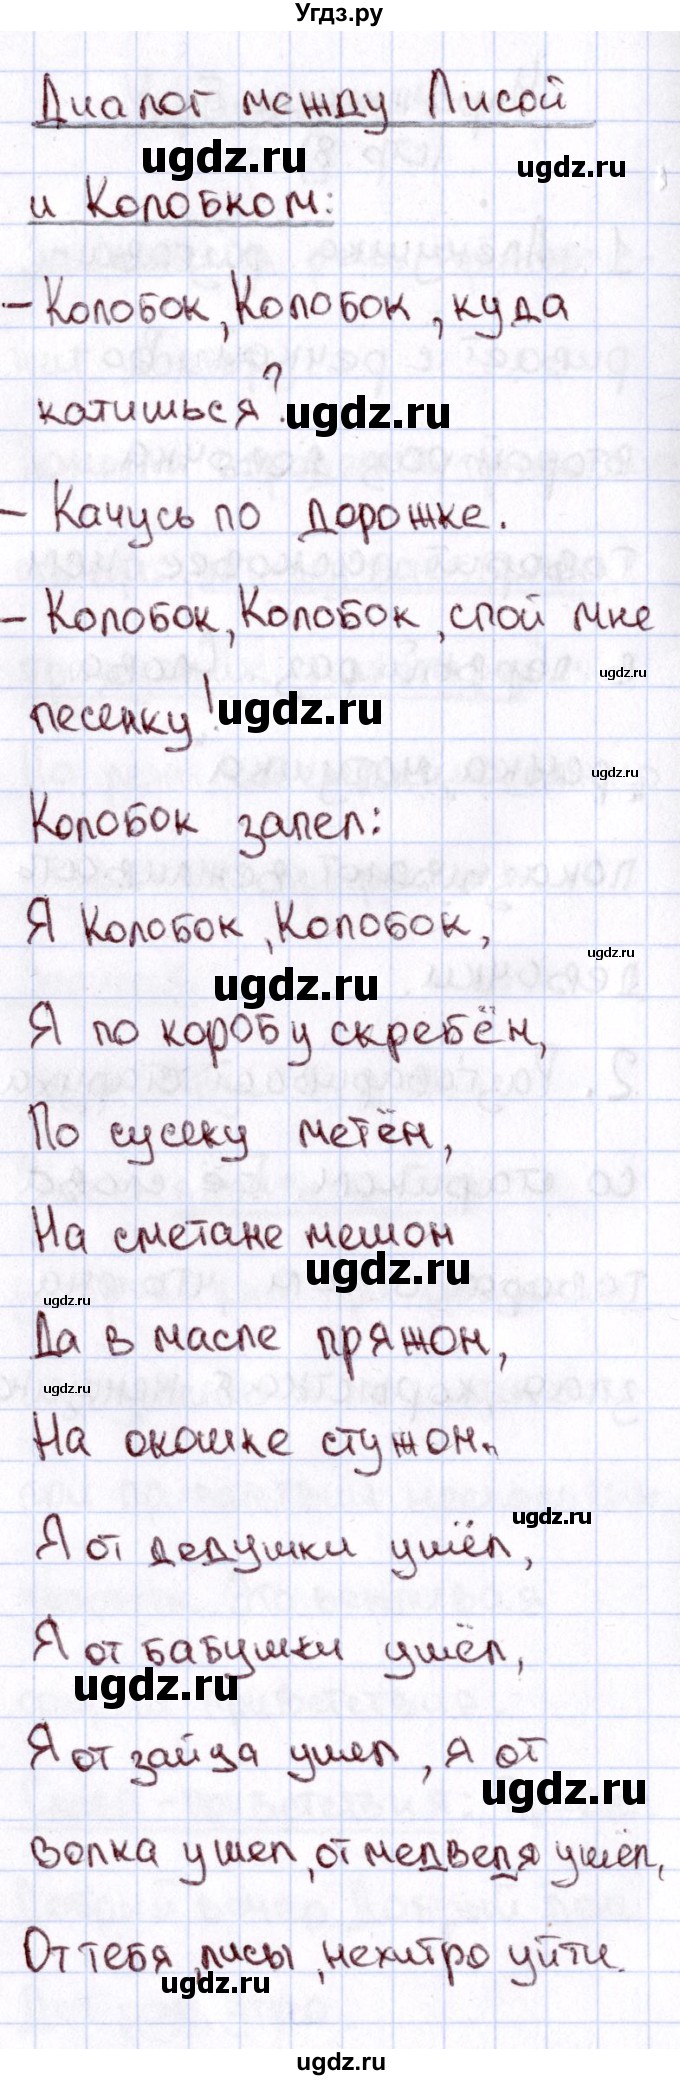 Угдз.ру
Диалог между Лисой
ugdz.ru
ugdz.ru
и Колобком:
- Колобок, Колобок, куда
катишься?
ugdz.ru
- Качусь по дорожке.
- Колобок, Колобок, спой мне
ugdz.ru
песенку!
ugdz.ru
ugdz.ru
Колобок запел:
Я Колобок, Колобок,
ugdz.ru
ugdz.ru
Я по коробу скребён,
По сусеку метён,
На сметане мешон
ugdz.ru
ugdz.ru
Да в масле пряжон,
ugdz.ru
На окошке стужон.
ugdz.ru
Я от дедушки ушёл,
Я от бабушки ушёл,
ugdz.ru
Я от зайца ушел, я от
ugdz.ru
волка ушел, от медведя ушёл,
От тебя, лисы, нехитро уйти.
ugdz.ru
ugdz.ru